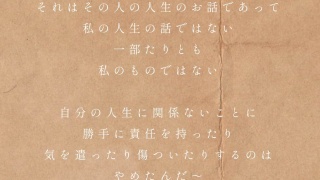 それはその人の人生のお話であって
私の人生の話ではない
一部たりとも
私のものではない
自分の人生に関係ないことに
勝手に責任を持ったり
気を遣ったり傷ついたりするのは
やめたんだ〜